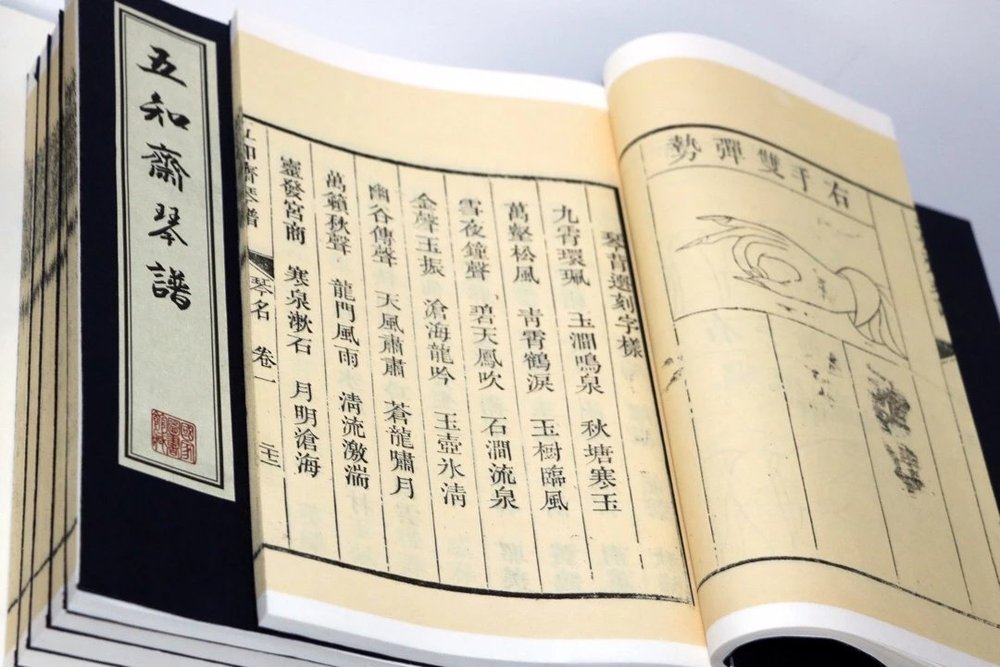 五知齋琴譜
右手雙彈勢
琴背選刻字樣
九霄環珮 玉澗鳴泉 秋塘寒玉
萬壑松風 青霄鶴淚 玉樹臨風
雪夜鐘聲 碧天鳳吹 石澗流泉
金聲玉振 滄海龍吟 玉壺氷清
幽谷傳聲 天風肅肅 蒼龍嘯月
萬籟秋聲 龍門風雨 清流激湍
靈發宮商 寒泉漱石 月明滄海
五知齋琴譜 琴名 卷一